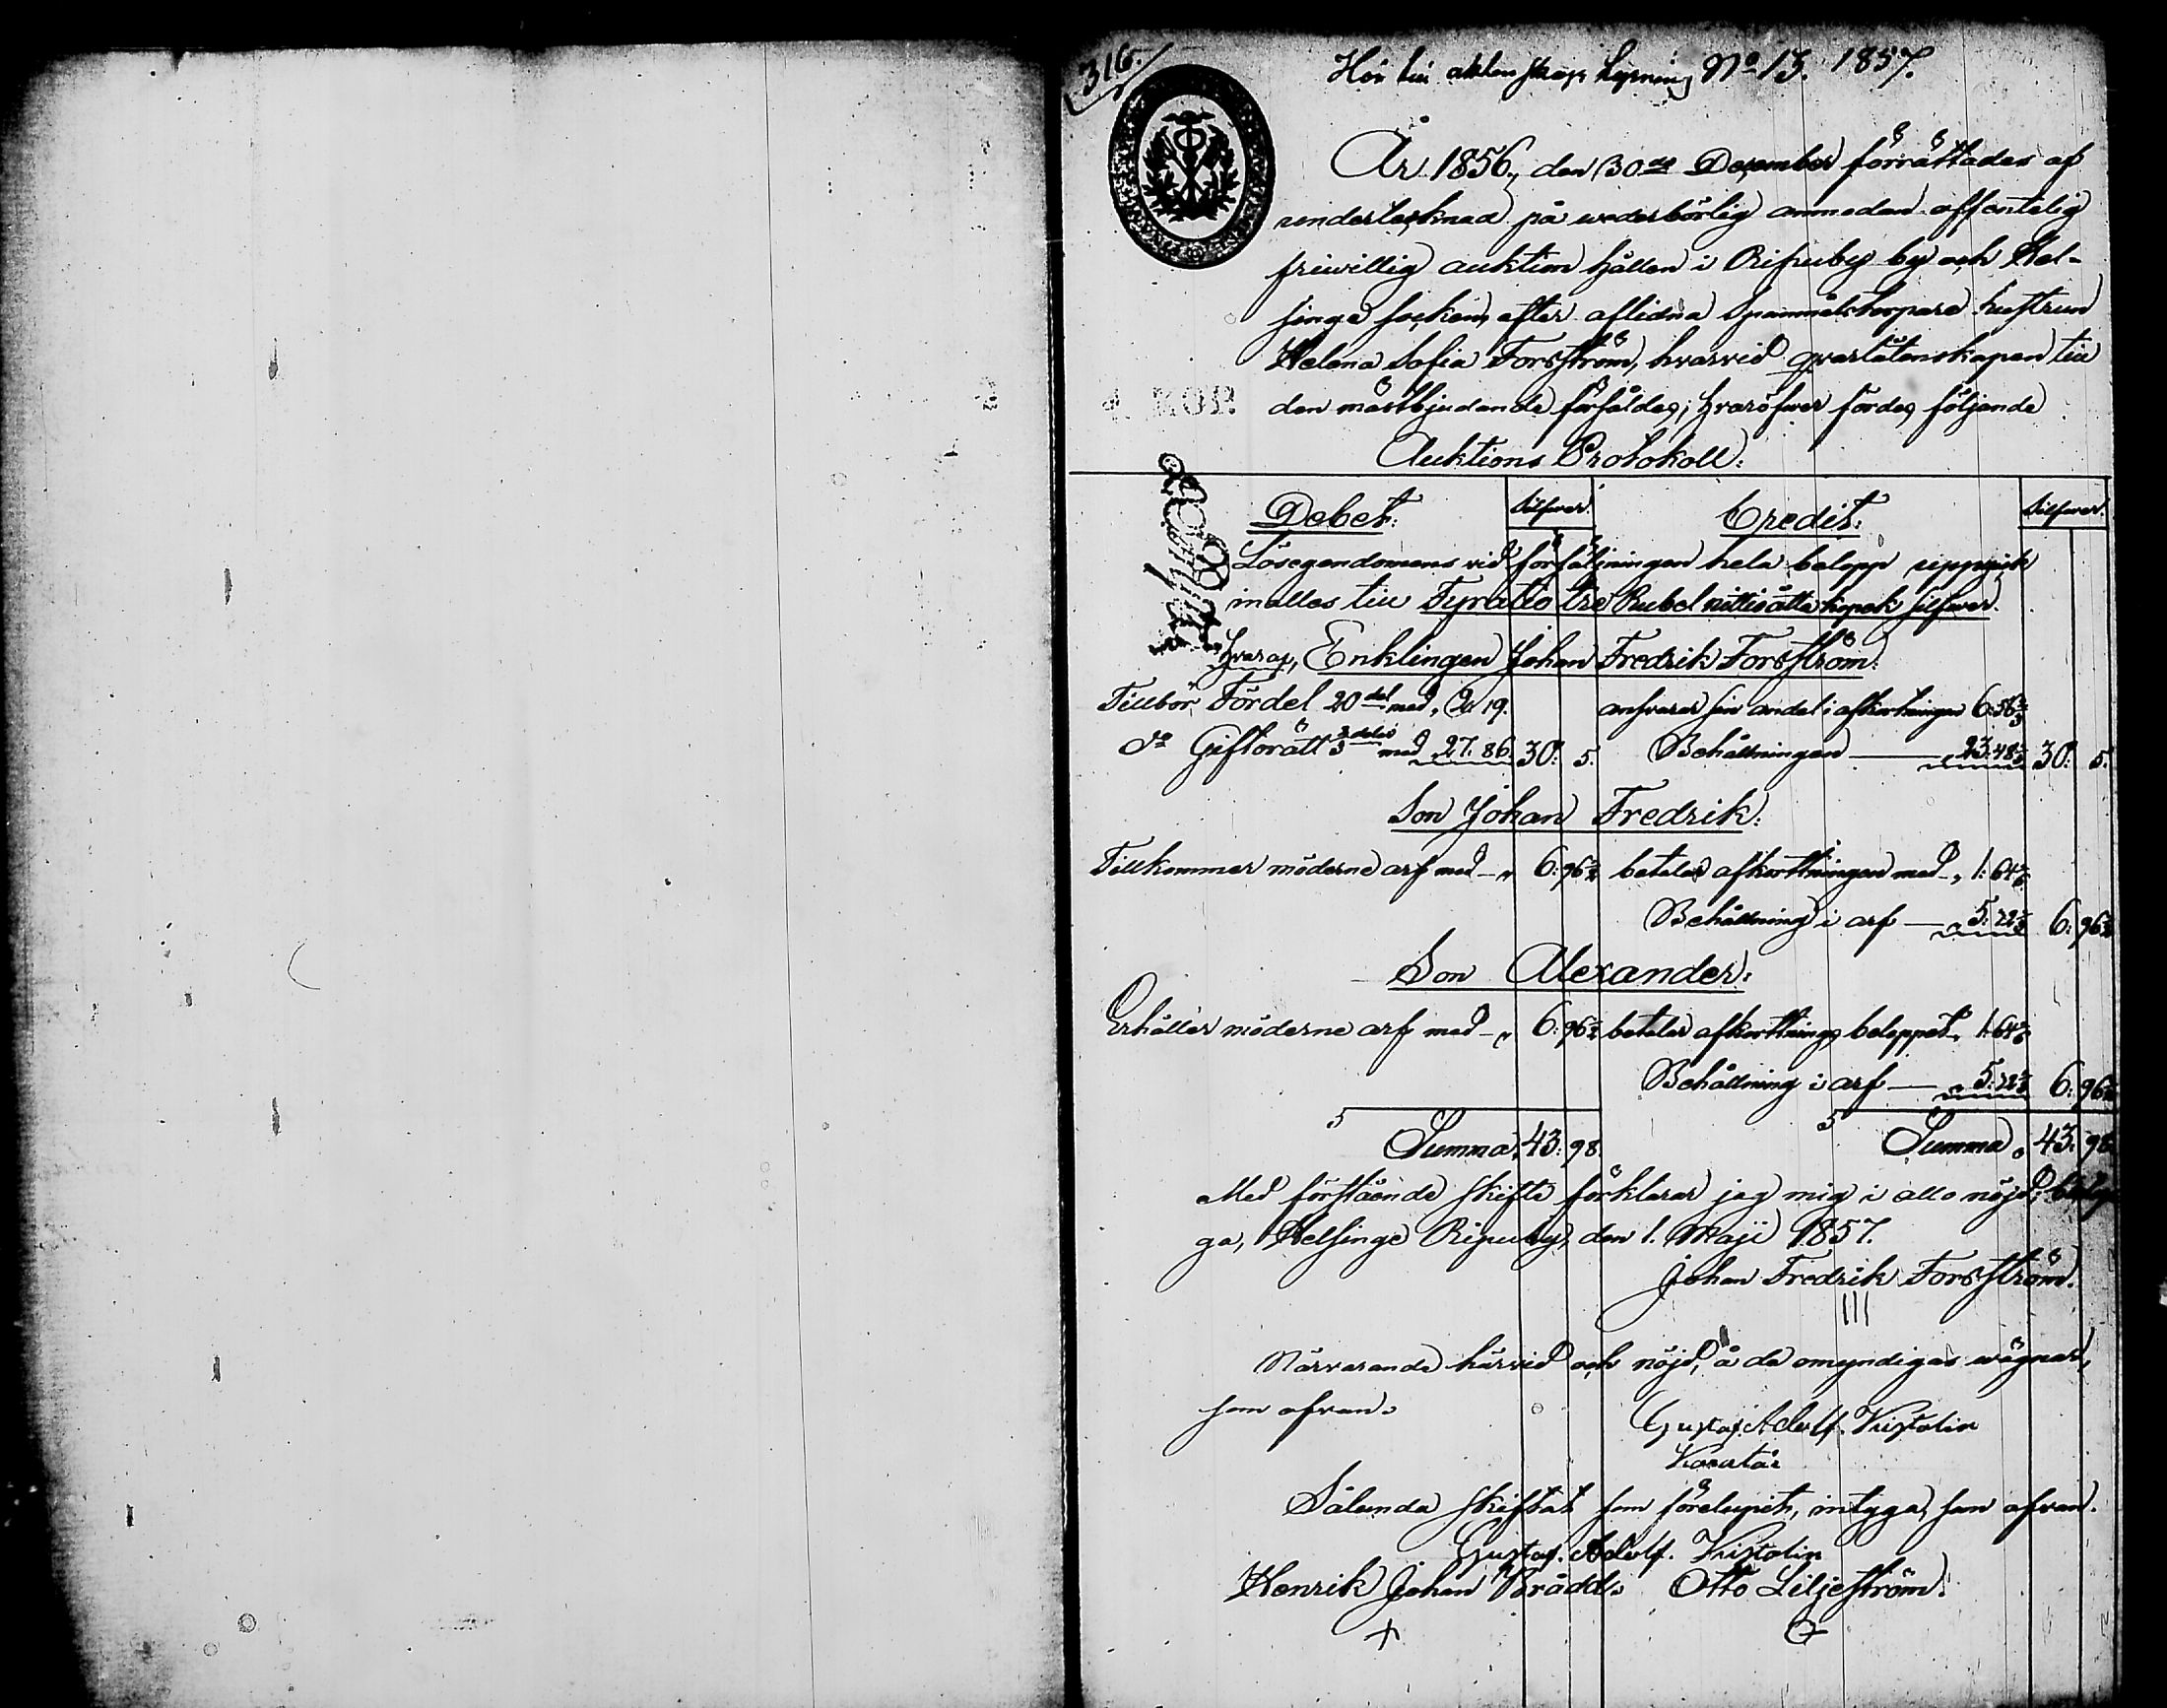 316.
Hör till aktenskaps lysning No 13. 1857.
År 1856, den 30de December förrättades af
undertecknad på wederbörlig anmodan offentelig
friwillig auktion hållen i Ripuby by och Hel-
singe socken, efter aflidna Spannmålstorpare hustrun
Helena Sofia Forsström, hvarvid qvarlåtenskapen till
4 KOP. den mästbjudande försåldes; hvaröfwer fördes följande
Auktions Protokoll:
Debet: Silfwer. Credit: Silfwer.
Lösegendomens vid försäljningen hela belopp uppgick
inalles till Fyratio tre Rubel nittioåtta kopek silfwer.
Hvaraf, Enklingen Johan Fredrik Forsström:
Tillbör Fördel 20del med, 2: 19. ansvarar sin andel i afkortningen 6:56 2/3
do Giftorätt 3 delis med 27. 86. 30: 5. Behållningen — 23:48 1/3 30: 5.
Son Johan Fredrik:
Tillkommer möderne arf med — " 6: 96 1/2 betalar afkorttningen med — " 1: 64 1/6
Behållning i arf — " 5: 32 1/3 6: 96 1/2
Son Alexander:
Erhåller möderne arf med — " 6: 96 1/2 betalar afkorttnings beloppet " 1:64 1/6
Behållning i arf — " 5: 32 1/3 6: 96 1/2
Summa, 43: 98. Summa, 43: 98
Med förstående skifte förklarar jag mig i allo nöjd,
ga, Helsinge Ripuby, den 1. Maji 1857.
Johan Fredrik Forsström.
Närvarande härvid och nöjd, å de omyndigas wägnar,
som ofvan.
Gustaf Adolf.
Sålunda skiftat som förelupit, intyga, som ofvan.
Gustaf. Adolf.
Henrik Johan Brådd. Otto Liljeström.